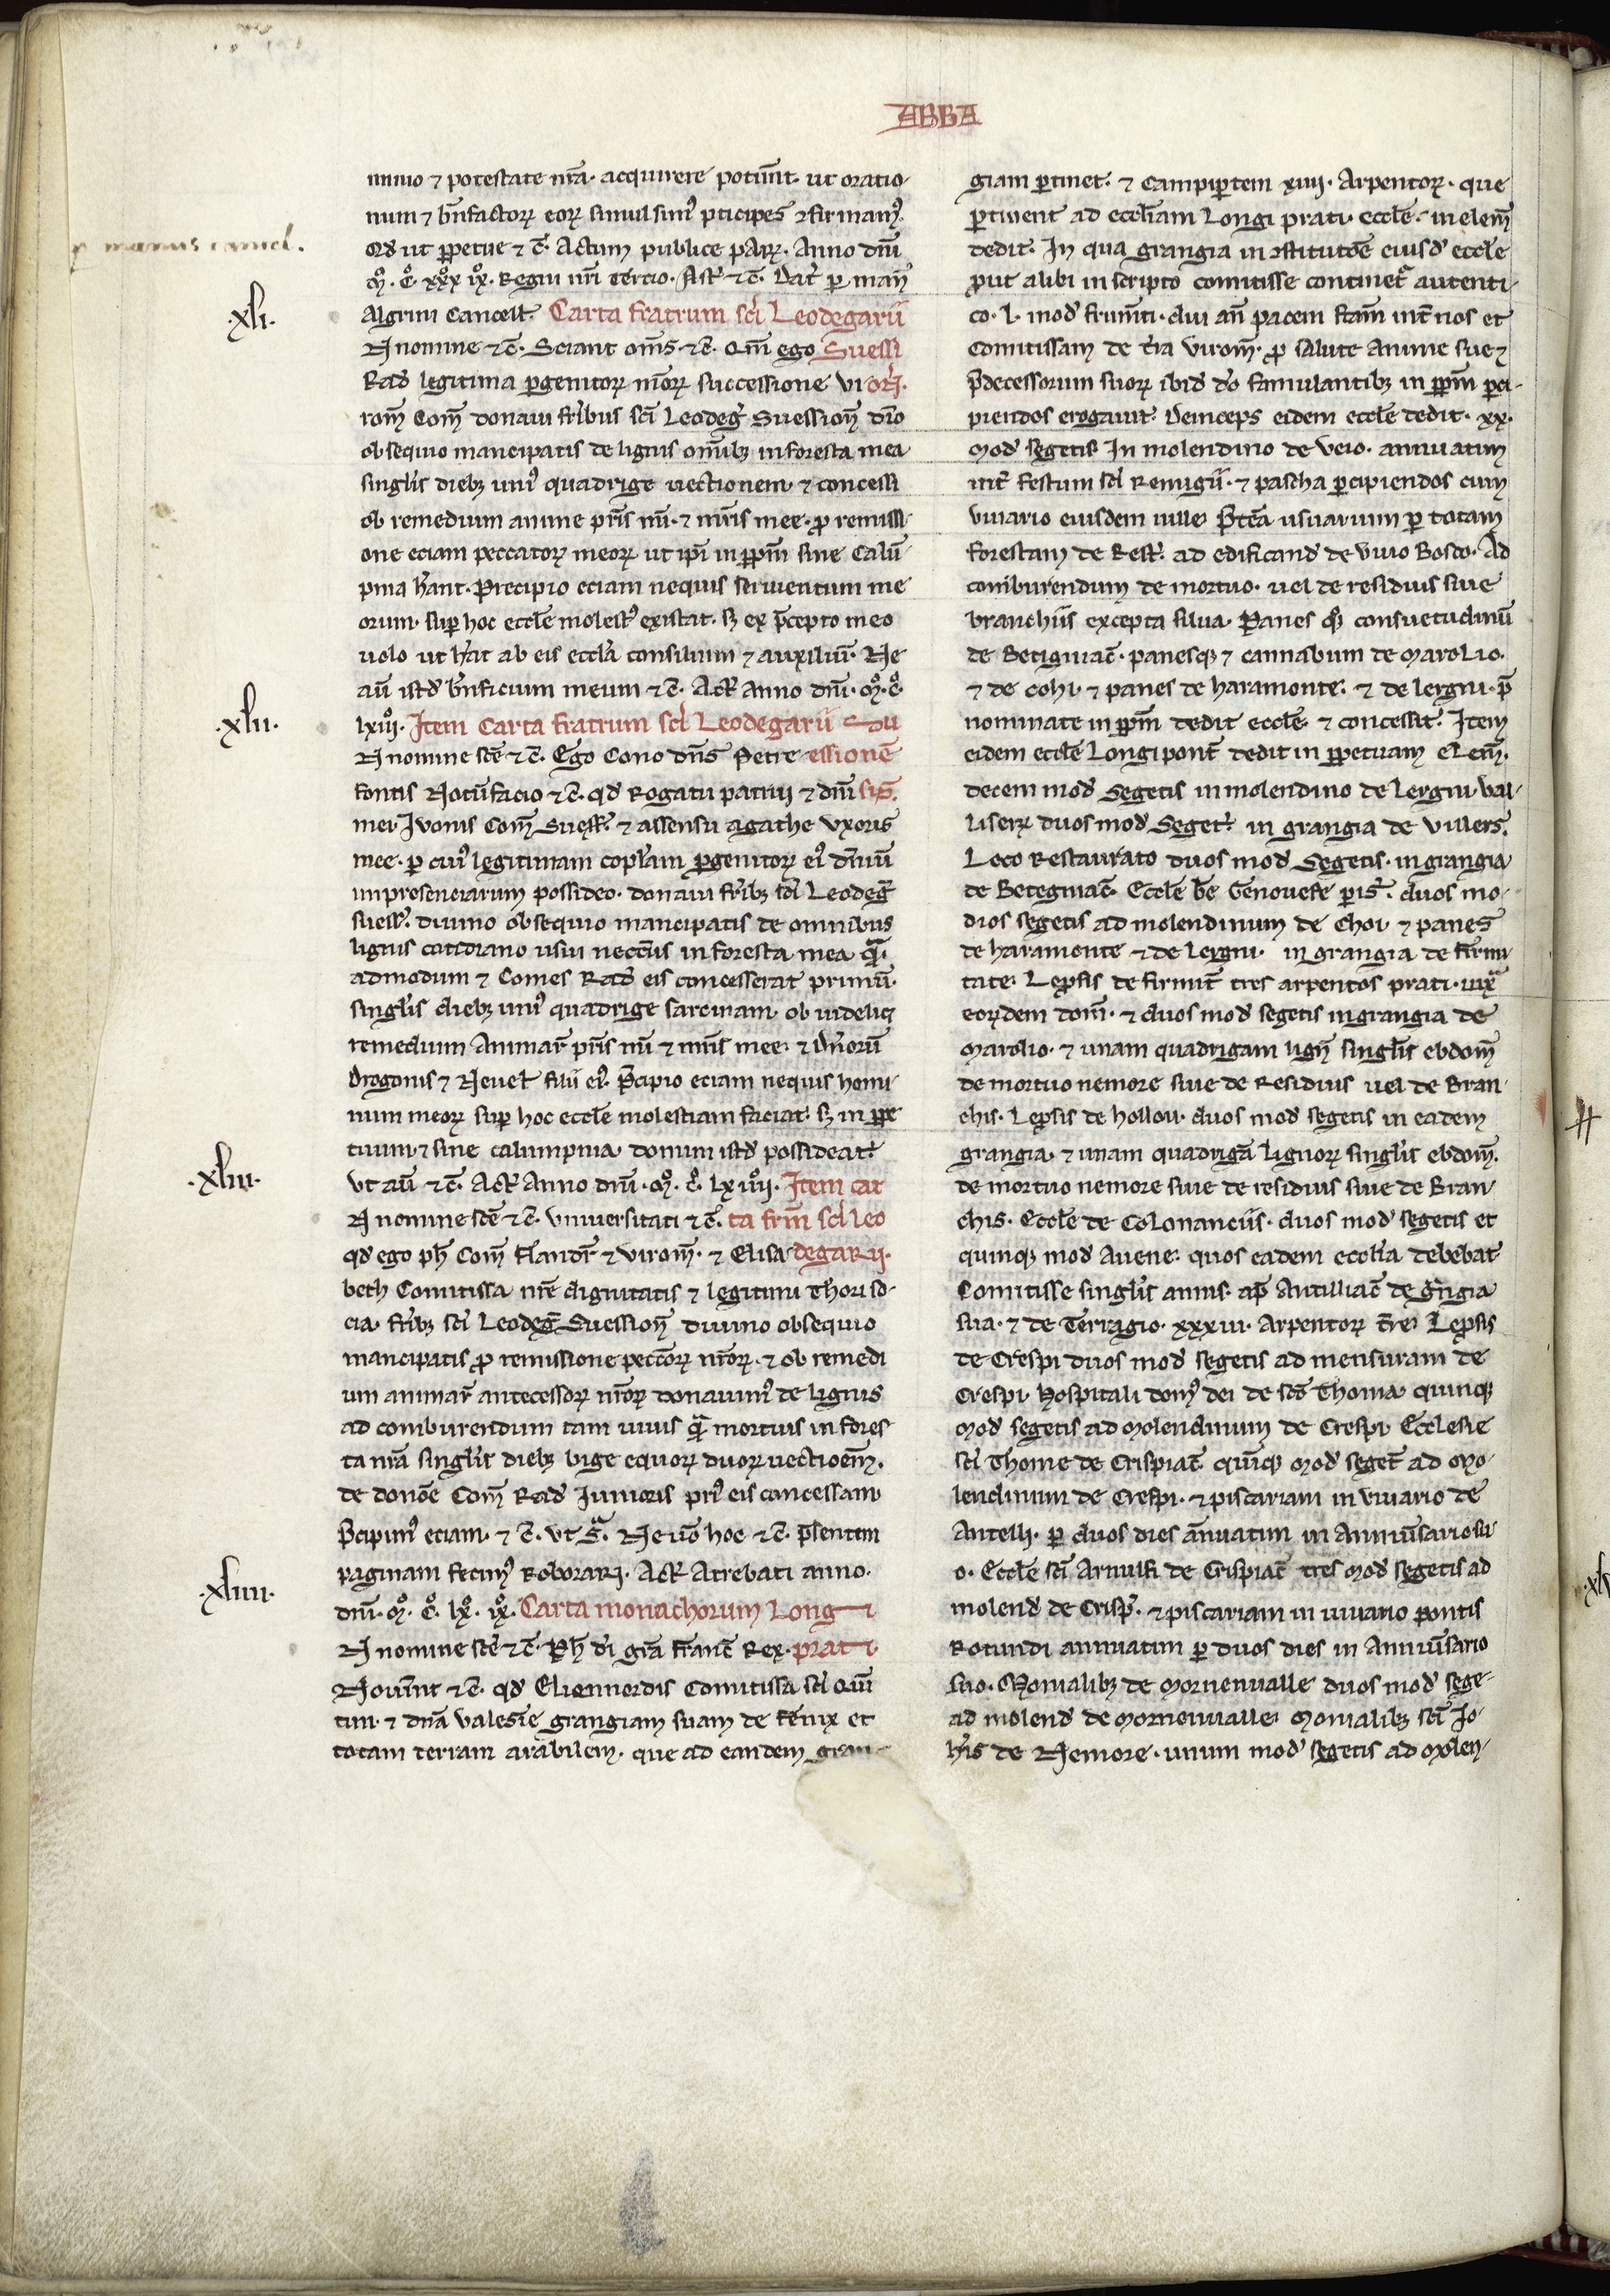 ABBA
minio ⁊ potestate nr̄a. acquirere poter̄int. ut oratio-
num ⁊ bn̄factoꝝ eoꝝ simul simꝰ pticipes ꝯfirmamꝰ.
Qd̄ ut ꝑpetue ⁊ c̄. Actum publice parꝭ. Anno dn̄i
.xli.
m̊. c̊. xxx ix̊. Regni nr̄i tercio. Ast̄ ⁊ c̄. Dat̄ per man̄
Algrini Cancell. Carta fratrum sci Leodegarii
N nomine ⁊ c̄. Sciant om̄s. ⁊ c̄. Qm̄ ego Suessi
Rad̄ legitima ꝓgenitoꝝ meoꝝ successione vi oꝝ.
rom̄ Com̄ donaui fr̄ibus sci Leodeg̉ Suession̄ diuo
obsequio mancipatis de lignis om̄ibꝫ in foresta mea
singl̉is diebꝫ uniꝰ quadrige uectionem ⁊ concessi
ob remedium anime pr̄is mi. ⁊ mr̄is mee. ꝓ remissi-
one eciam peccatoꝝ meoꝝ ut ip̄i in ꝑpm̄ sine Calū-
pnia h̄ant. Precipio eciam nequis seruientum me
orum. suꝑ hoc eccl̄e molestꝰ existat. sꝫ ex p̄cepto meo
uolo ut h̄at ab eis eccl̄a consilium ⁊ auxiliū. Ne
au̅ istd̄ bn̄ficium meum ⁊ c̄. Act̄ Anno dn̄i. m̊. c̊.
.xlii.
lxiii̊. Item Carta fratrum sci Leodegarii Su
N nomine scē ⁊ c̄. Ego Cono dn̄s Petre essionē
fontis Notū facio ⁊ c̄. qd̄ Rogatu patrui ⁊ dn̄i sis̄.
mei Ivonis Com̄ Suess̄. ⁊ assensu agathe vxoris
mee. ꝑ cuiꝰ legitimam copl̄am ꝓgenitoꝝ eiꝰ dn̄iū
inpresenciarum possideo. donaui fr̄ibꝫ sci Leodeg̉
suess̄. diuino obsequio mancipatis de omnibus
lignis cotidiano usui necc̄iis in foresta mea qᵃ̄
admodum ⁊ Comes Rad̄ eis concesserat primū.
singl̉is diebꝫ uniꝰ quadrige sarcinam ob videlicꝫ
remedium Animaꝝ pr̄is mi ⁊ mr̄is mee. ⁊ dn̄orū
Drogonis ⁊ Neuel̄ filii eiꝰ. P̄cipio eciam nequis homi-
num meoꝝ suꝑ hoc eccl̄e molestiam faciat. sꝫ in ꝑpe
tuum ⁊ sine calumpnia donum istd̄ possideat.
.xliii.
Vt au̅ ⁊ c̄. Act̄ Anno dn̄i. m̊. c̊. lx iiii̊. Item car
N nomine scē ⁊ c̄. Vniuersitati ⁊ c̄. ta fr̄m sci Leo
qd̄ ego ph̄ Com̄ Flandr̄ ⁊ virom̄. ⁊ Elisa degarii.
beth Comitissa nr̄e dignitatis ⁊ legitimi Thori so-
cia. fr̄ibꝫ sci Leodeg̉ Suession̄ diuino obsequio
mancipatis ꝓ remissione pecc̄oꝝ nr̄oꝝ. ⁊ ob remedi
um animaꝝ antecessoꝝ nr̄oꝝ donauimꝰ de lignis
ad comburendum tam uiuis qᵃ̄ mortuis in fores
ta nr̄a singl̉is diebꝫ bige equoꝝ duoꝝ uectioēm.
de donōe Com̄ Rad̄ Iunioris priꝰ eis concessam
P̄cipimꝰ eciam. ⁊ c̄. vt sᵃ̄. Ne uo̅ hoc ⁊ c̄. p̄sentem
paginam fecimꝰ Roborari. Act̄ Atrebati anno.
.xliiii.
dn̄i. m̊. c̊. lx̊. ix̊. Carta monachorum Long i
N nomine scē ⁊ c̄. Ph̄ di gr̄a Franc̄ Rex. prati.
Nouint̄ ⁊ c̄. qd̄ Eliennordis Comitissa sci Qui̅
tini ⁊ dn̄a Valesie grangiam suam de Fenix et
totam terram arabilem. que ad eandem gran-
giam ꝑtinet. ⁊ Campiꝑtem xiiii. Arpentoꝝ. que
ꝑtinent ad eccl̄iam Longi prati. eccl̄e. in elem̄
dedit. In qua grangia in ꝯstitutōe eiusd̄ eccl̄e
ꝓut alibi in scripto comitisse continet̄ autenti-
co. l. mod̄ frum̄ti. diu an̄ pacem fc̄am int̄ nos et
Comitissam de tr̄a Virom̄. ꝓ salute anime sue ⁊
p̄decessorum suoꝝ ibid̄ do̅ famulantibꝫ in ꝑpm̄ ꝑci-
piendos erogauit. Deinceps eidem eccl̄e dedit. xx.
mod̄ segetis In molendino de Veio. annuatim
int̄ Festum sci Remigii. ⁊ pascha ꝑcipiendos cum
Viuario eiusdem uille. P̄t̄ea usuarium ꝑ totam
forestam de Rest̄. ad edificand̄ de viuo Bosco. Ad
comburendum de mortuo. uel de residuis siue
branchiis excepta silua. Panes qꝫ consuetudinū
de Betigniac̄. panesqꝫ ⁊ cannabum de Marolio.
⁊ de cohi. ⁊ panes de haramonte. ⁊ de lergni. p̄
nominate in ꝑpm̄ dedit eccl̄e. ⁊ concessit. Item
eidem eccl̄e Longipont̄ dedit in ꝑpetuam elem̄.
decem mod̄ Segetis in molendino de lergni. Val-
liserꝝ duos mod̄ Seget̄. in grangia de Villers.
Loco Restaurato duos mod̄ Segetis. in grangia
de Betegniac̄. Eccl̄e be̅ Genouefe pis̄. duos mo-
dios segetis ad molendinum de Choi. ⁊ panes
de haramonte ⁊ de lergni. in grangia de firmi-
tate. Lep̄sis de firmit̄ tres arpentos prati. iuxᵃ̄
eoꝝdem dom̄. ⁊ duos mod̄ segetis in grangia de
Marolio. ⁊ unam quadrigam lign̄ singl̉is ebdom̄
de mortuo nemore siue de Residuis uel de Bran-
chis. Lep̄sis de hollou. duos mod̄ segetis in eadem
grangia. ⁊ unam quadrigā Lignoꝝ singl̉is ebdom̄.
de mortuo nemore siue de residuis siue de Bran-
chis. Eccl̄e de Colonanciis. duos mod̄ segetis et
quinqꝫ mod̄ Auene. quos eadem eccl̄ia debebat
Comitisse singl̉is annis. ap̄ Antilliac̄ de gᵃngia
sua. ⁊ de Terragio. xxxiii. Arpentoꝝ t̄re. Lep̄sis
de Crespi duos mod̄ segetis ad mensuram de
Crespi. Hospitali domꝰ dei de sc̄o Thoma. quinqꝫ
mod̄ segetis ad Molendinum de Crespi. Ecclesie
sci Thome de Crispiac̄. quinqꝫ mod̄ seget̄ ad Mo-
lendinum de Crespi. ⁊ piscariam in viuario de
Antelli. ꝑ duos dies ānuatim in Anniūsario su-
o. Eccl̄e sci Arnulfi de Crispiac̄ tres mod̄ segetis ad
molend̄ de Crisp̄. ⁊ piscariam in uiuario pontis
Rotundi annuatim ꝑ duos dies in Anniūsario
suo. Monialibꝫ de Mornenualle duos mod̄ sege-
ad molend̄ de Mornenualle. Monialibꝫ sci Jo-
h̄is de Nemore. unum mod̄ segetis ad Molen-